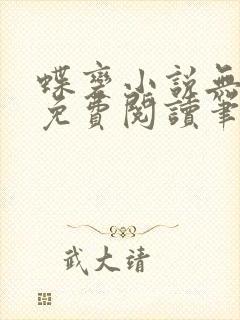 蝶变小说無
免費閱讀筆
武大靖